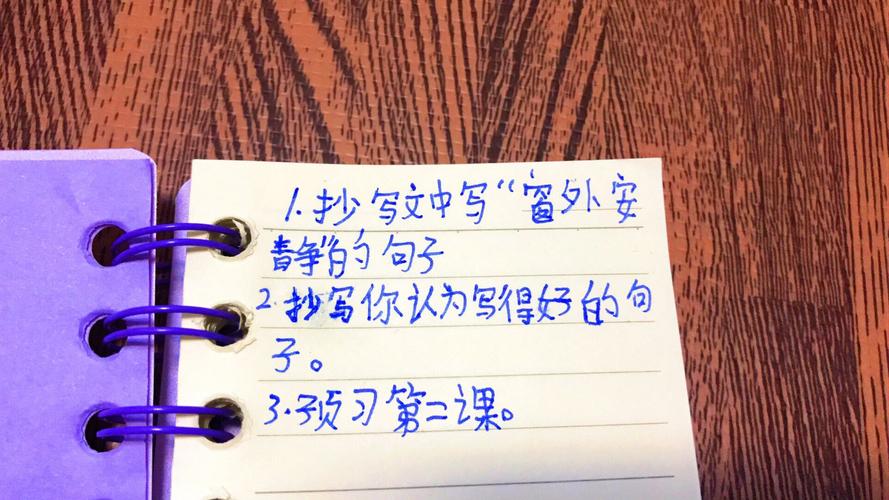 1.抄写文中写“窗外安
静”的句子
2.抄写你认为写得好的句
子。
3.预习第二课。